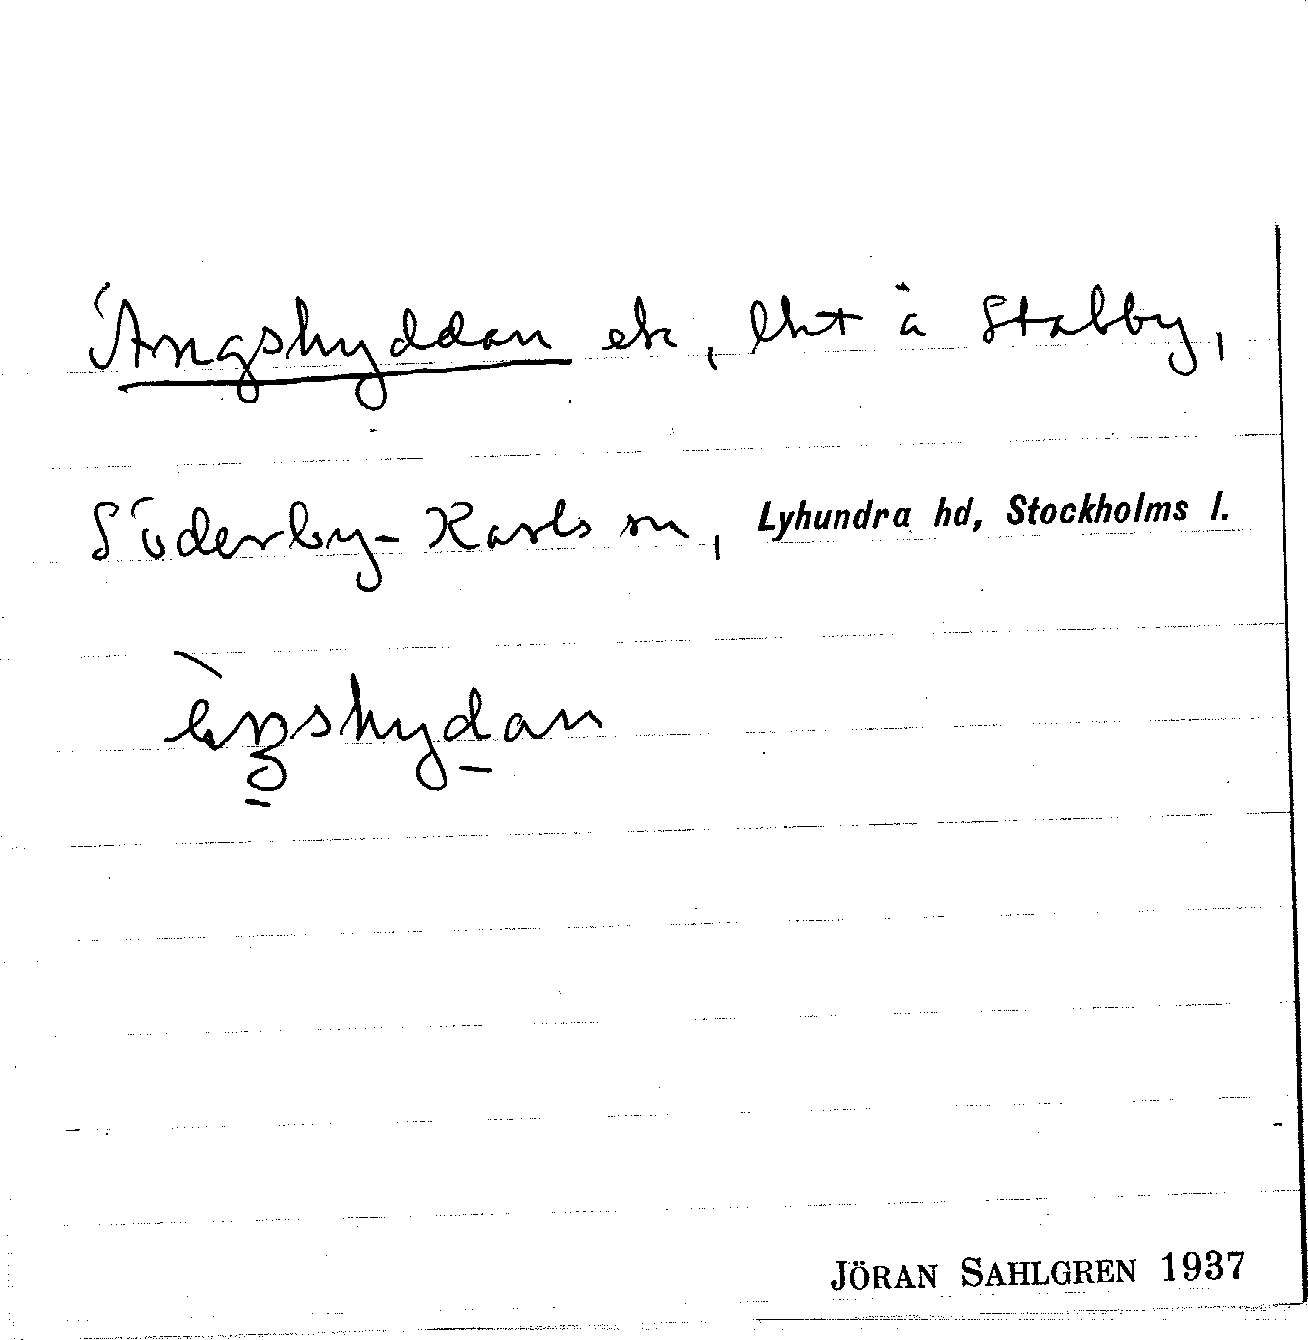 Ängshyddan ek, lht å Stabby,
Söderby-Karls sn, Lyhundra hd, Stockholms l.
JÖRAN SAHLGREN 1937